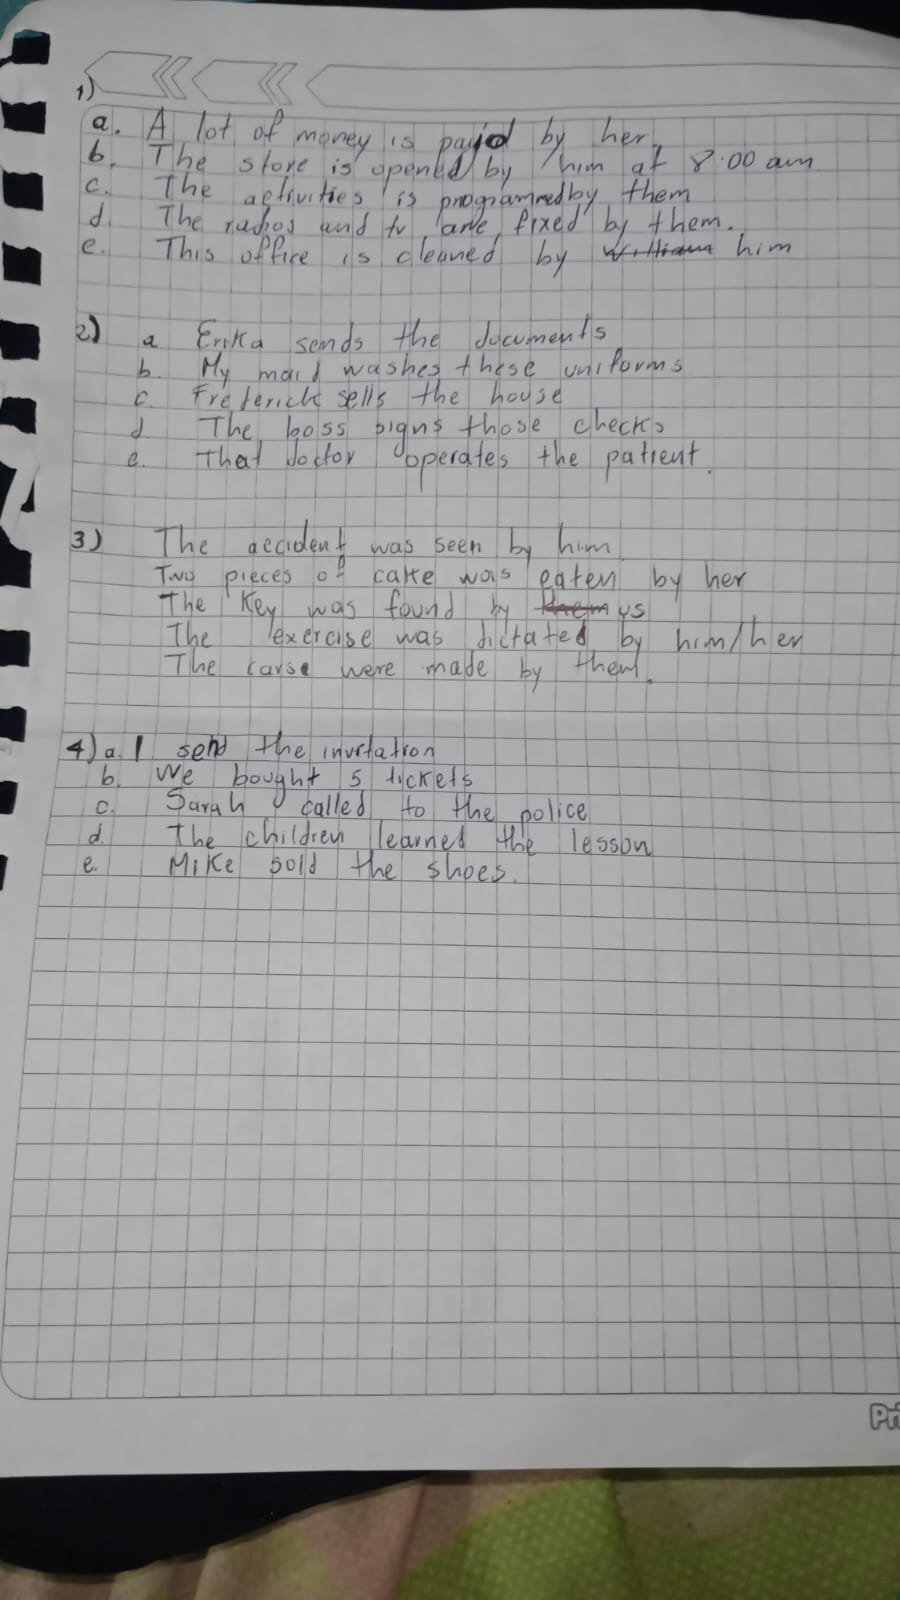 1)
a. A lot of money is paid by her.
b. The store is opened by him at 8:00 am
c. The activities is programmed by them
d. The radios and tv are fixed by them.
e. This office is cleaned by William him
2) a Erika sends the documents
b. My maid washes these uniforms
c. Frederick sells the house
d. The boss signs those checks
e. That doctor operates the patient.
3) The accident was seen by him
Two pieces of cake was eaten by her
The key was found by them us
The exercise was dictated by him/her
The carse were made by them.
4) a. I send the invitation
b. We bought 5 tickets
c. Sarah called to the police
d. The children learned the lesson
e. Mike sold the shoes.